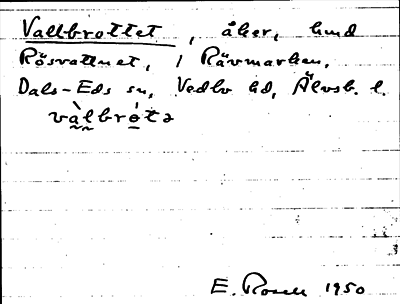 Vallbrottet, åker, hmd
Rösvattnet, 1 Rävmarken,
Dals-Eds sn, Vedbo hd, Älvsb. l.
vàlbrótə
E. Rosell 1950